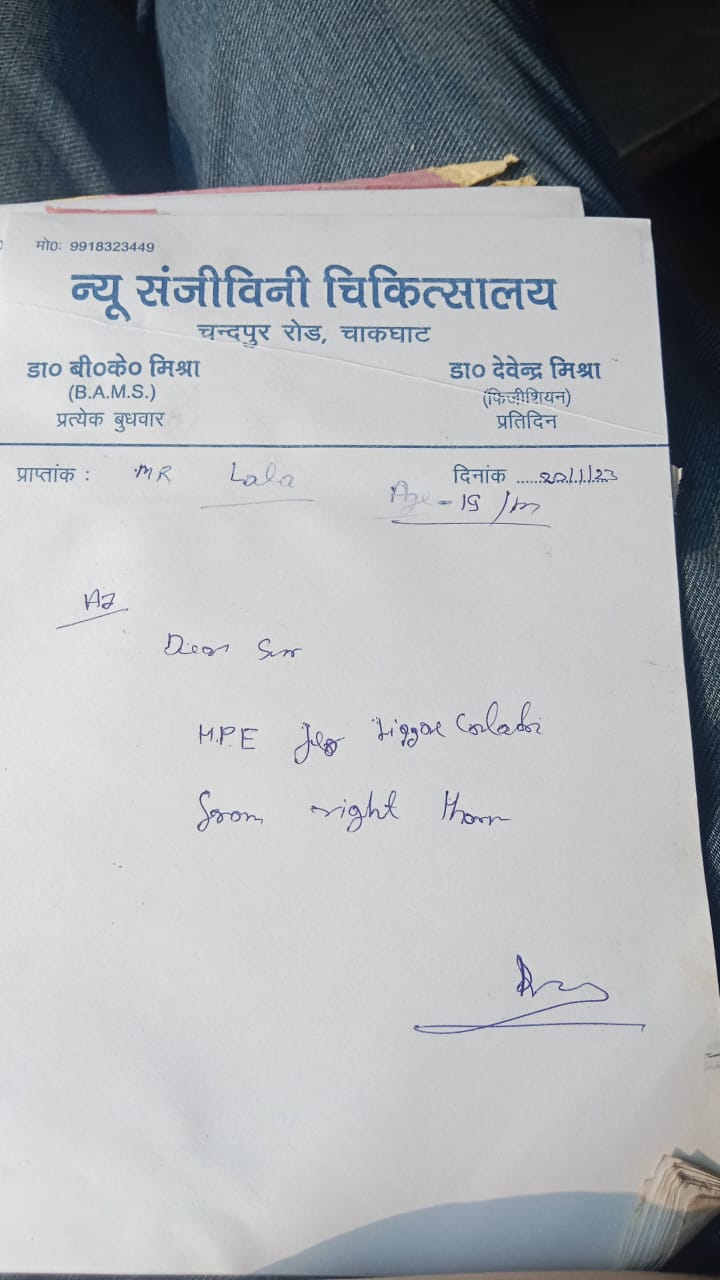 मो0: 9918323449
न्यू संजीविनी चिकित्सालय
चन्दपुर रोड, चाकघाट
डा० बी०के० मिश्रा
(B.A.M.S.)
प्रत्येक बुधवार
डा० देवेन्द्र मिश्रा
(फिजीशियन)
प्रतिदिन
प्राप्तांक : MR Lala
दिनांक ......20/1/23
Age - 19 /m
Dear Sir
H.P.E for
from right